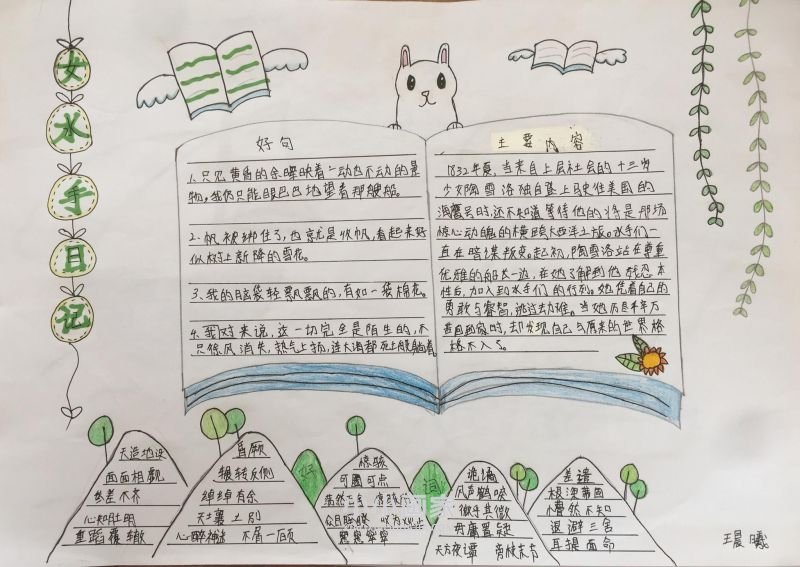 女水手日记
好句
1.只见黄昏的余曝映着一动也不动的景
物,我们只能眼巴巴地望着那艘船。
2.帆被绑住了,也就是收帆,看起来好
似树上新降的雪花。
3.我的脑袋轻飘飘的,有如一袋棉花。
4.我对来说,这一切完全是陌生的,不
只徐风消失,热气上扬,连大海都死上般躺着
主要内容
1832年夏,当来自上层社会的十三岁
少女陶雪洛独自登上驶往美国的
海鹰号时,还不知道等待他的将是那场
惊心动魄的横跨大西洋之旅。水手们一
直在暗谋叛变。起初,陶雪洛站在尊重
优雅的船长一边,在她了解到他残忍本
性后,加入到水手们的行列。她凭着自己的
勇敢与睿智,逃过去难。当她历尽千辛万
苦回到家时,却发现自己与原来的世界格
格不入了。
天造地设
面面相觑
参差不齐
心知肚明
重蹈覆辙
盲顾
辗转反侧
绰绰有余
天壤之别
心醉神迷 不屑一顾
好
惊骇
可圈可点
众目睽睽
窸窸窣窣
词
诡谲
风声鹤唳
微乎其微
毋庸置疑
天方夜谭 旁敲击方
差遣
极深莽面
懵然不知
退避三舍
耳提面命
王晨曦